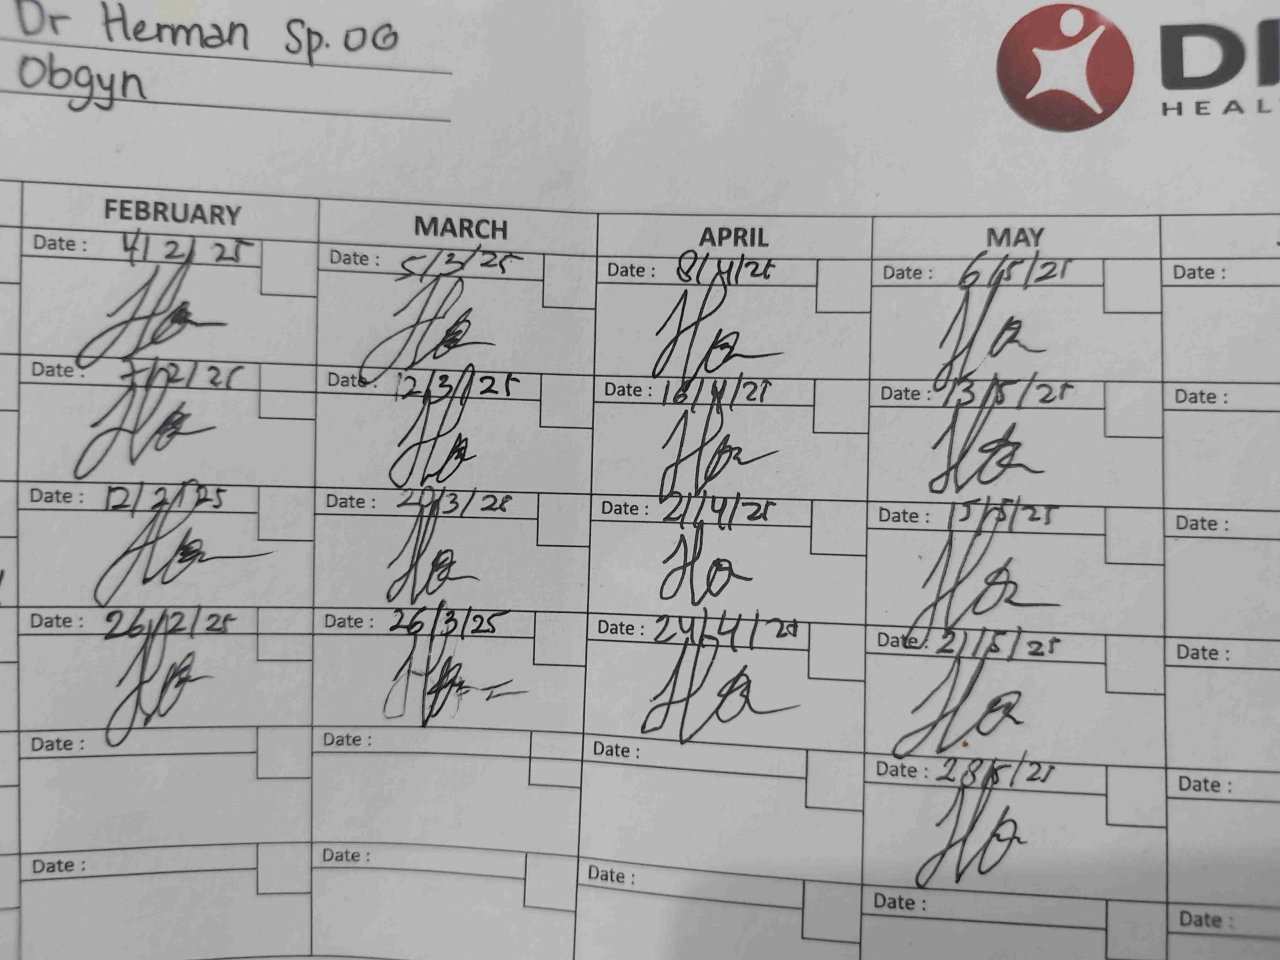 Dr Herman Sp.OG
Obgyn
HEAL
FEBRUARY MARCH APRIL MAY
Date : 4/2/25 Date : 5/3/25 Date : 8/4/25 Date : 6/5/25 Date :
Date : 7/2/25 Date : 12/3/25 Date : 16/4/25 Date : 13/5/25 Date :
Date : 12/2/25 Date : 20/3/25 Date : 21/4/25 Date : 15/5/25 Date :
Date : 26/2/25 Date : 26/3/25 Date : 24/4/25 Date : 21/5/25 Date :
Date : Date : Date : Date : 28/5/25 Date :
Date : Date : Date : Date : Date :